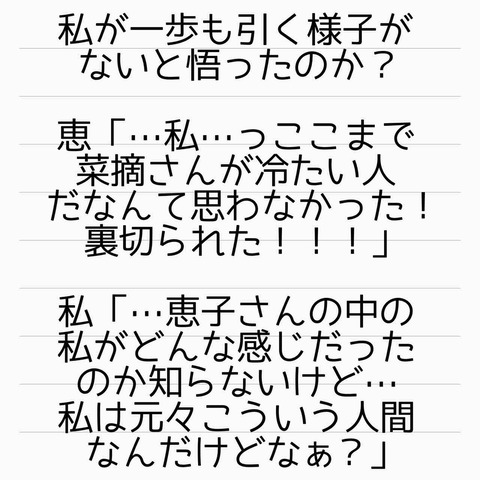 私が一歩も引く様子が
ないと悟ったのか？
恵「…私…っここまで
菜摘さんが冷たい人
だなんて思わなかった！
裏切られた！！！」
私「…恵子さんの中の
私がどんな感じだった
のか知らないけど…
私は元々こういう人間
なんだけどなぁ？」